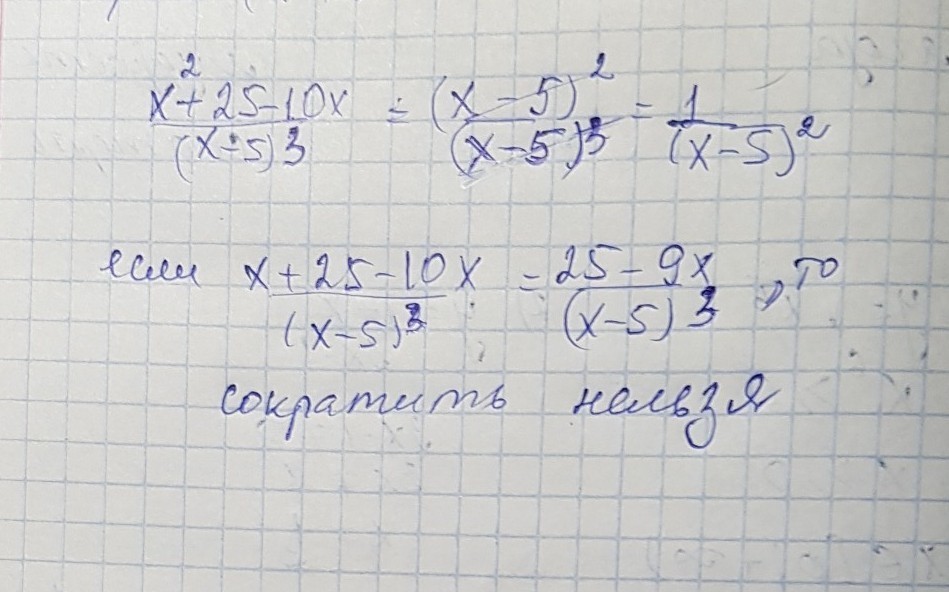 x²+25-10x / (x-5)3 = (x-5)² / (x-5)³ = 1 / (x-5)²
если x+25-10x / (x-5)³ = 25-9x / (x-5)3, то
сократить нельзя